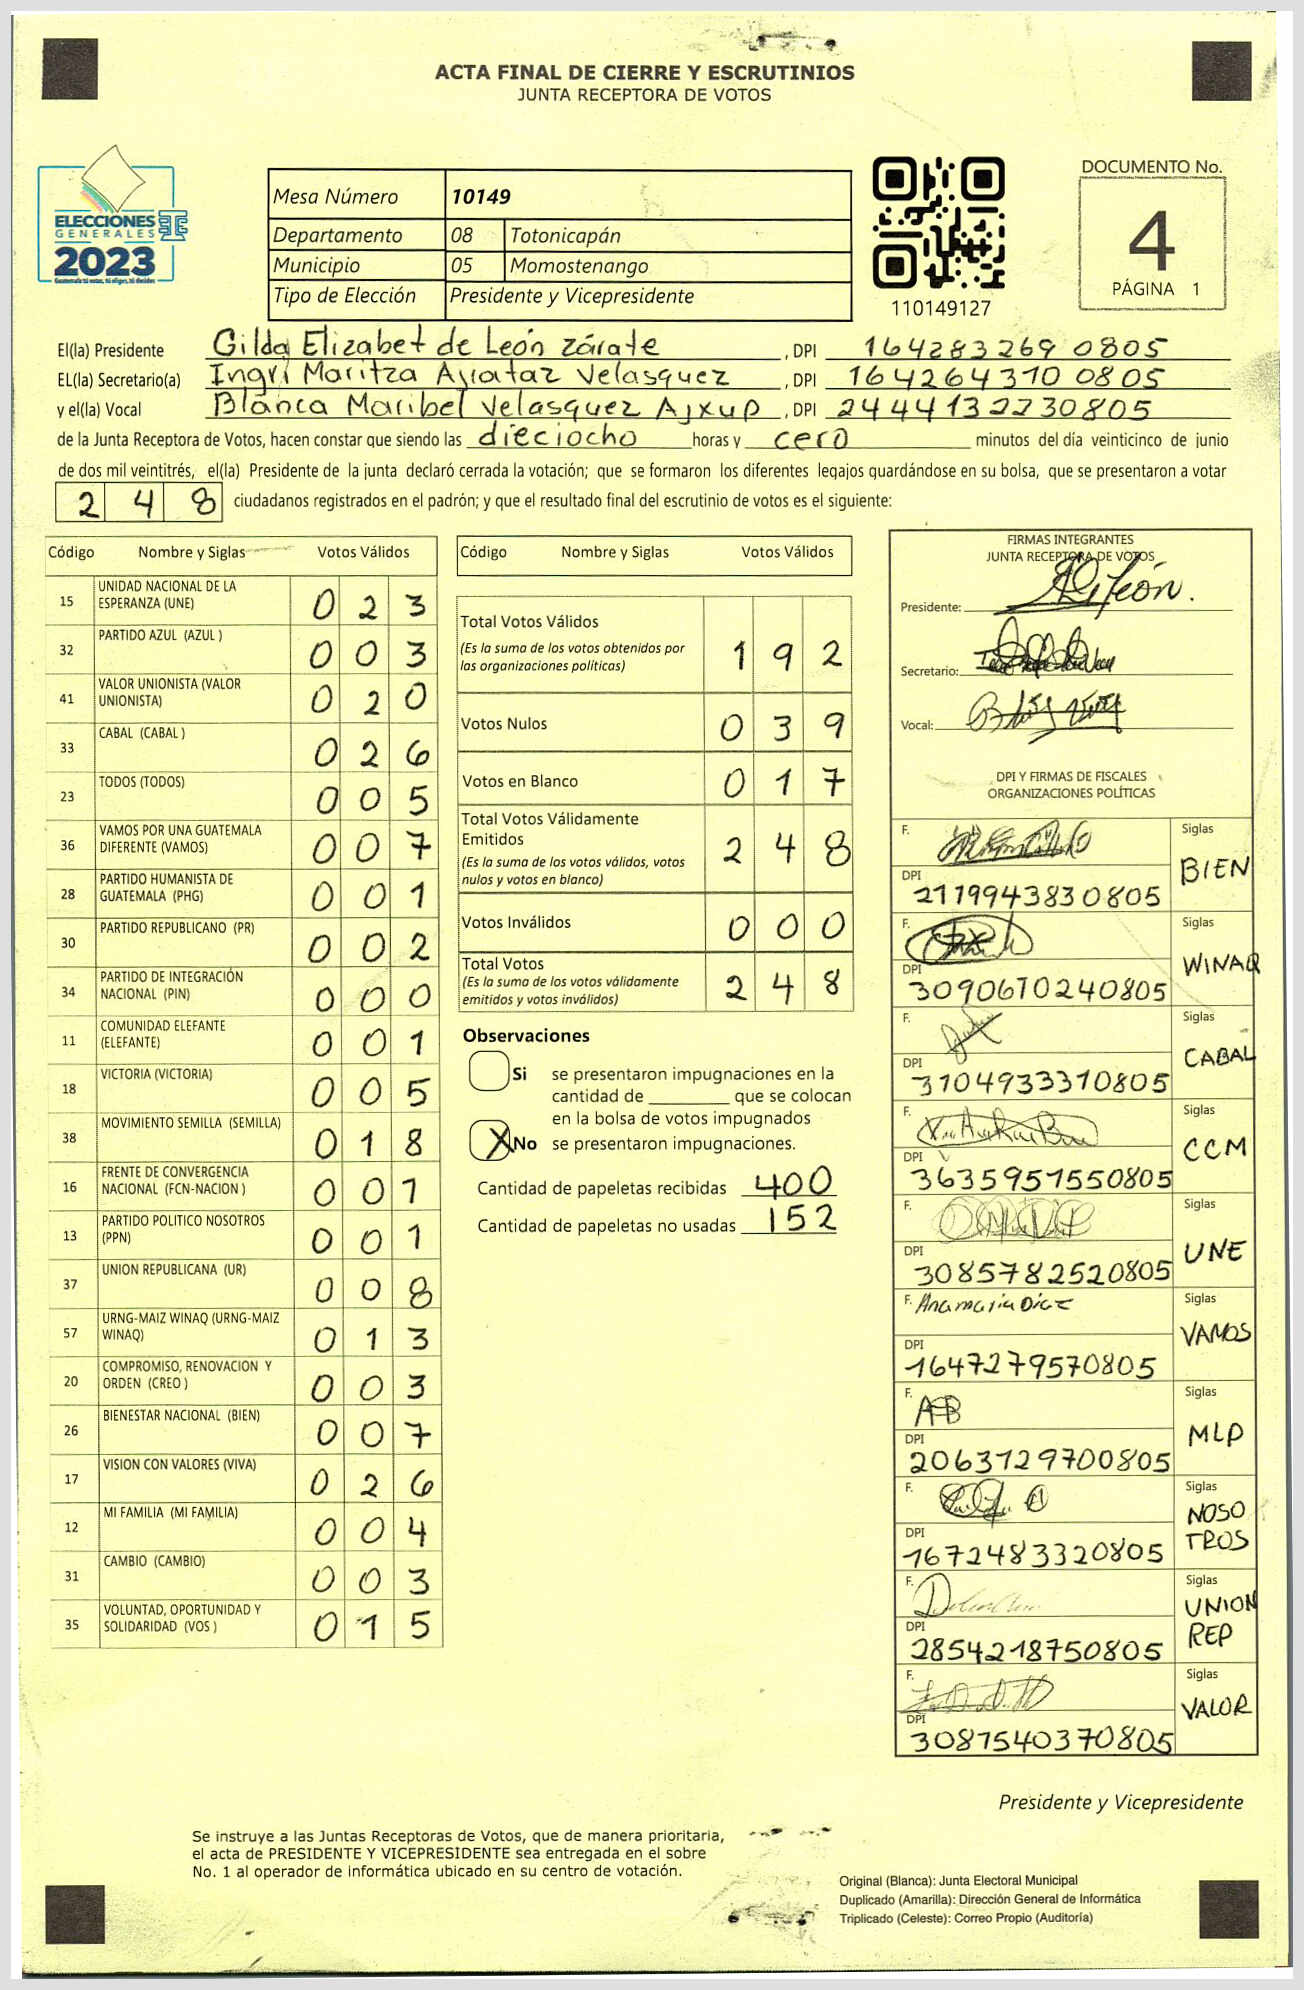 ACTA FINAL DE CIERRE Y ESCRUTINIOS
JUNTA RECEPTORA DE VOTOS
ELECCIONES
GENERALES
2023
Guatemala tú votas, tú eliges, tú decides
Mesa Número 10149
Departamento 08 Totonicapán
Municipio 05 Momostenango
Tipo de Elección Presidente y Vicepresidente
110149127
DOCUMENTO No.
4
PÁGINA 1
El(la) Presidente Gilda Elizabet de León Zárate, DPI 164283269 0805
EL(la) Secretario(a) Ingri Maritza Ajxataz Velasquez, DPI 164264310 0805
y el(la) Vocal Blanca Maribel Velasquez Ajxup, DPI 2444132230805
de la Junta Receptora de Votos, hacen constar que siendo las dieciocho horas y cero minutos del día veinticinco de junio
de dos mil veintitrés, el(la) Presidente de la junta declaró cerrada la votación; que se formaron los diferentes legajos guardándose en su bolsa, que se presentaron a votar
248 ciudadanos registrados en el padrón; y que el resultado final del escrutinio de votos es el siguiente:
Código Nombre y Siglas Votos Válidos
15 UNIDAD NACIONAL DE LA ESPERANZA (UNE) 023
32 PARTIDO AZUL (AZUL ) 003
41 VALOR UNIONISTA (VALOR UNIONISTA) 020
33 CABAL (CABAL ) 026
23 TODOS (TODOS) 005
36 VAMOS POR UNA GUATEMALA DIFERENTE (VAMOS) 007
28 PARTIDO HUMANISTA DE GUATEMALA (PHG) 001
30 PARTIDO REPUBLICANO (PR) 002
34 PARTIDO DE INTEGRACIÓN NACIONAL (PIN) 000
11 COMUNIDAD ELEFANTE (ELEFANTE) 001
18 VICTORIA (VICTORIA) 005
38 MOVIMIENTO SEMILLA (SEMILLA) 018
16 FRENTE DE CONVERGENCIA NACIONAL (FCN-NACION ) 001
13 PARTIDO POLITICO NOSOTROS (PPN) 001
37 UNION REPUBLICANA (UR) 008
57 URNG-MAIZ WINAQ (URNG-MAIZ WINAQ) 013
20 COMPROMISO, RENOVACION Y ORDEN (CREO ) 003
26 BIENESTAR NACIONAL (BIEN) 007
17 VISION CON VALORES (VIVA) 026
12 MI FAMILIA (MI FAMILIA) 004
31 CAMBIO (CAMBIO) 003
35 VOLUNTAD, OPORTUNIDAD Y SOLIDARIDAD (VOS ) 015
Código Nombre y Siglas Votos Válidos
Total Votos Válidos 192
(Es la suma de los votos obtenidos por
las organizaciones políticas)
Votos Nulos 039
Votos en Blanco 017
Total Votos Válidamente
Emitidos 248
(Es la suma de los votos válidos, votos
nulos y votos en blanco)
Votos Inválidos 000
Total Votos 248
(Es la suma de los votos válidamente
emitidos y votos inválidos)
Observaciones
Si se presentaron impugnaciones en la
cantidad de ________ que se colocan
en la bolsa de votos impugnados
X No se presentaron impugnaciones.
Cantidad de papeletas recibidas 400
Cantidad de papeletas no usadas 152
FIRMAS INTEGRANTES
JUNTA RECEPTORA DE VOTOS
Presidente:
Secretario:
Vocal:
DPI Y FIRMAS DE FISCALES
ORGANIZACIONES POLÍTICAS
F. Siglas BIEN
DPI 2119943830805
F. Siglas WINAQ
DPI 3090670240805
F. Siglas CABAL
DPI 3104933310805
F. Siglas CCM
DPI 3635951550805
F. Siglas UNE
DPI 3085782520805
F. Anamaria Diaz Siglas VAMOS
DPI 1647279570805
F. AB Siglas MLP
DPI 2063129700805
F. Siglas NOSOTROS
DPI 1672483320805
F. Siglas UNION REP
DPI 2854218750805
F. Siglas VALOR
DPI 3087540370805
Presidente y Vicepresidente
Se instruye a las Juntas Receptoras de Votos, que de manera prioritaria,
el acta de PRESIDENTE Y VICEPRESIDENTE sea entregada en el sobre
No. 1 al operador de informática ubicado en su centro de votación.
Original (Blanca): Junta Electoral Municipal
Duplicado (Amarilla): Dirección General de Informática
Triplicado (Celeste): Correo Propio (Auditoría)